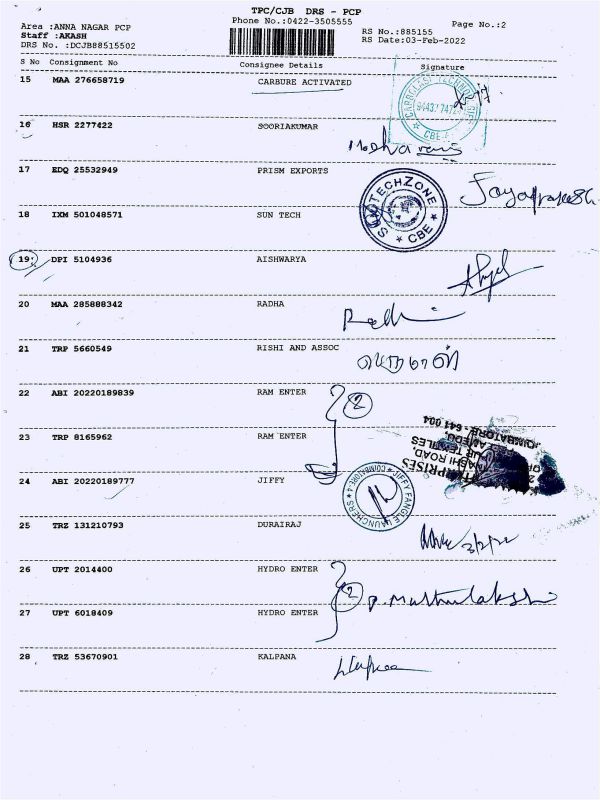 TPC/CJB DRS - PCP
Phone No.:0422-3505555
Page No.:2
Area :ANNA NAGAR PCP
Staff :AKASH
DRS No. :DCJB88515502
RS No.:885155
RS Date:03-Feb-2022
S No Consignment No Consignee Details Signature
15 MAA 276658719 CARBURE ACTIVATED
16 HSR 2277422 SOORIAKUMAR
17 EDQ 25532949 PRISM EXPORTS
Jayaprakash
18 IXM 501048571 SUN TECH
TECHZONE
CBE
19 DPI 5104936 AISHWARYA
20 MAA 285888342 RADHA
Radhi
21 TRP 5660549 RISHI AND ASSOC
22 ABI 20220189839 RAM ENTER
2
23 TRP 8165962 RAM ENTER
24 ABI 20220189777 JIFFY
JIFFY FANGLE LAUNCHERS
COIMBATORE-4
25 TRZ 131210793 DURAIRAJ
3/2/22
26 UPT 2014400 HYDRO ENTER
2 P. Muthulakshi
27 UPT 6018409 HYDRO ENTER
28 TRZ 53670901 KALPANA